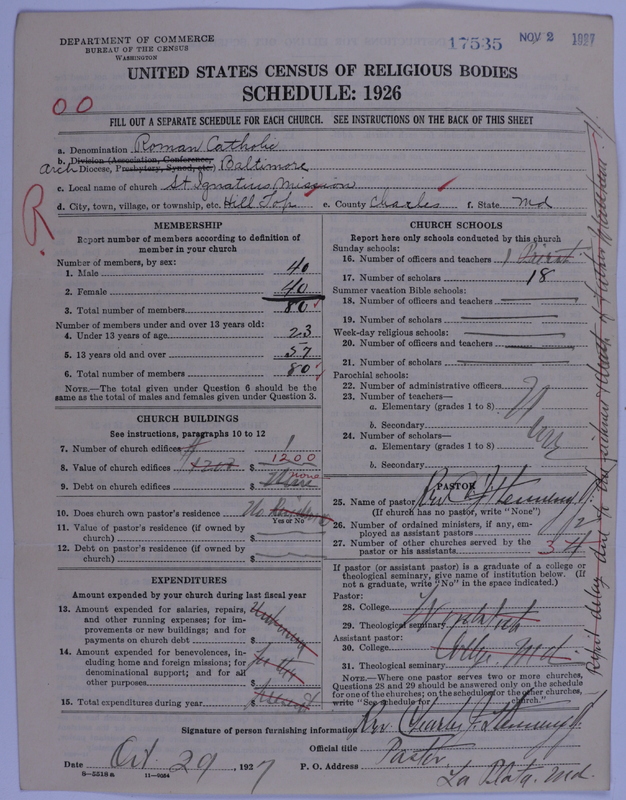 DEPARTMENT OF COMMERCE
BUREAU OF THE CENSUS
WASHINGTON
17535 NOV 2 1927
UNITED STATES CENSUS OF RELIGIOUS BODIES
SCHEDULE: 1926
00
FILL OUT A SEPARATE SCHEDULE FOR EACH CHURCH. SEE INSTRUCTIONS ON THE BACK OF THIS SHEET
a. Denomination Roman Catholic
b. Division (Association, Conference,
Arch Diocese, Presbytery, Synod, etc.) Baltimore
c. Local name of church St Ignatius Mission
d. City, town, village, or township, etc. Hill Top e. County Charles f. State Md
R.
MEMBERSHIP
Report number of members according to definition of
member in your church
Number of members, by sex:
1. Male 40
2. Female 40
3. Total number of members 80
Number of members under and over 13 years old:
4. Under 13 years of age 23
5. 13 years old and over 57
6. Total number of members 80
NOTE.—The total given under Question 6 should be the
same as the total of males and females given under Question 3.
CHURCH BUILDINGS
See instructions, paragraphs 10 to 12
7. Number of church edifices 1
8. Value of church edifices $ 1200
9. Debt on church edifices $ none
10. Does church own pastor's residence No
Yes or No
11. Value of pastor's residence (if owned by
church) $
12. Debt on pastor's residence (if owned by
church) $
EXPENDITURES
Amount expended by your church during last fiscal year
13. Amount expended for salaries, repairs,
and other running expenses; for im-
provements or new buildings; and for
payments on church debt $
14. Amount expended for benevolences, in-
cluding home and foreign missions; for
denominational support; and for all
other purposes $
15. Total expenditures during year $
CHURCH SCHOOLS
Report here only schools conducted by this church
Sunday schools:
16. Number of officers and teachers 1
17. Number of scholars 18
Summer vacation Bible schools:
18. Number of officers and teachers
19. Number of scholars
Week-day religious schools:
20. Number of officers and teachers
21. Number of scholars
Parochial schools:
22. Number of administrative officers
23. Number of teachers—
a. Elementary (grades 1 to 8)
b. Secondary
24. Number of scholars—
a. Elementary (grades 1 to 8)
b. Secondary
PASTOR
25. Name of pastor Rev C J
(If church has no pastor, write "None")
26. Number of ordained ministers, if any, em-
ployed as assistant pastors 2
27. Number of other churches served by the
pastor or his assistants 3
If pastor (or assistant pastor) is a graduate of a college or
theological seminary, give name of institution below. (If
not a graduate, write "No" in the space indicated.)
Pastor:
28. College
29. Theological seminary Woodstock
Assistant pastor:
30. College College, Md.
31. Theological seminary
NOTE.—Where one pastor serves two or more churches,
Questions 28 and 29 should be answered only on the schedule
for one of the churches; on the schedules for the other churches,
write "See schedule for church."
Signature of person furnishing information Rev. Charles J.
Official title Pastor
Date Oct. 29, 1927 P. O. Address La Plata, Md.
8—5518a 11—9054
Report delay of Father Matthews